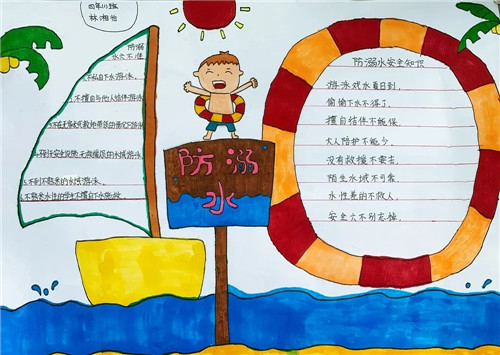 四年(1)班
林湘怡
防溺
水六不准
1.不私自下水游泳。
2.不擅自与他人结伴游泳。
3.不在无家长或教师带领的情况下游泳。
5.不到不熟悉的水域游泳。
6.不熟悉水性的学生不擅自下水施救。
防溺
水
防溺水安全知识
游泳戏水夏日到,
偷偷下水不得了。
擅自结伴不能保,
大人陪护不能少。
没有救援不要去,
陌生水域不可靠。
水性差的不救人,
安全六不别忘掉。